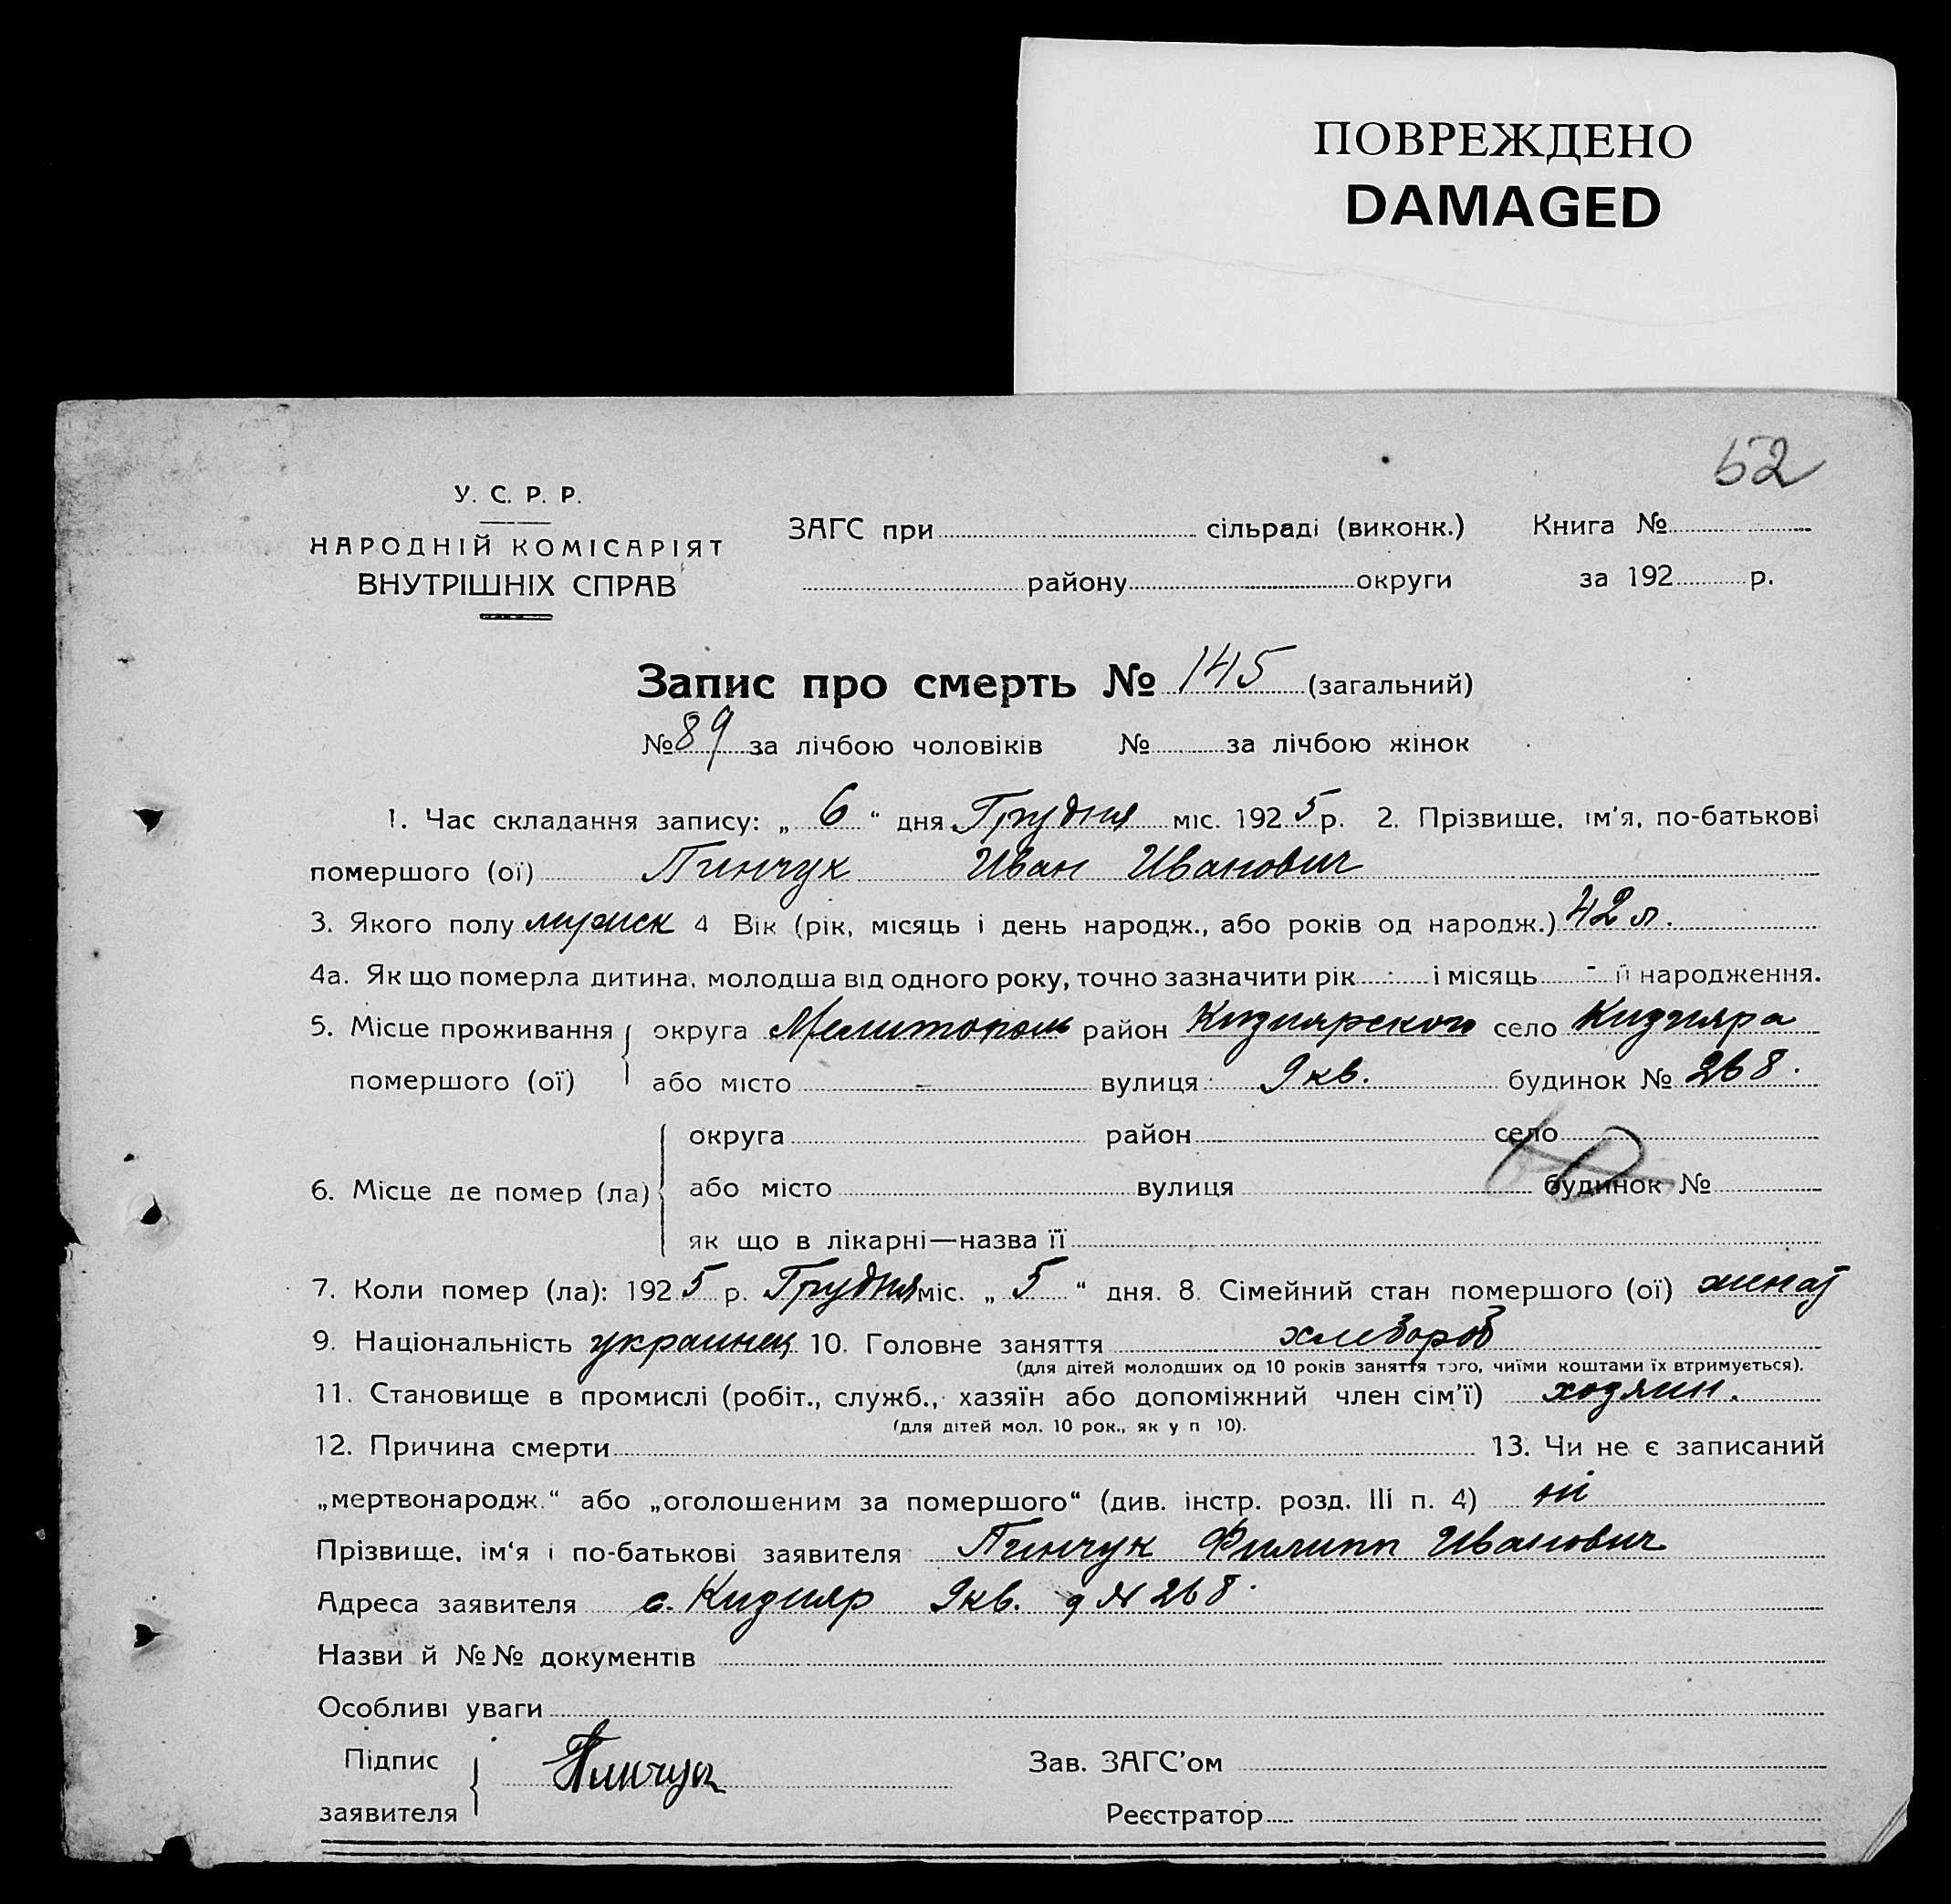 ПОВРЕЖДЕНО
DAMAGED
52
У. С. Р. Р.
НАРОДНІЙ КОМІСАРІЯТ
ВНУТРІШНІХ СПРАВ
ЗАГС при сільраді (виконк.) Книга №
району округи за 192 р.
Запис про смерть № 145 (загальний)
№ 89 за лічбою чоловіків № за лічбою жінок
1. Час складання запису: „ 6 “ дня Грудня міс. 1925 р. 2. Прізвище, ім'я, по-батькові
помершого (ої) Пинчук Иван Иванович
3. Якого полу мужск 4 Вік (рік, місяць і день народж., або років од народж.) 42 л.
4а. Як що померла дитина, молодша від одного року, точно зазначити рік - і місяць - її народження.
5. Місце проживання округа Мелитополь район Кизиярского село Кизияра
помершого (ої) або місто - вулиця 9 кв. будинок № 268.
округа район село
6. Місце де помер (ла) або місто вулиця будинок №
як що в лікарні—назва її
7. Коли помер (ла): 1925 р. Грудня міс. „ 5 “ дня. 8. Сімейний стан помершого (ої) женат
9. Національність украинец 10. Головне заняття хлебороб
(для дітей молодших од 10 років заняття того, чиїми коштами їх втримується).
11. Становище в промислі (робіт., служб., хазяїн або допоміжний член сім'ї) хозяин.
(для дітей мол. 10 рок., як у п 10).
12. Причина смерти 13. Чи не є записаний
„мертвонародж.“ або „оголошеним за помершого“ (див. інстр. розд. III п. 4) ні
Прізвище, ім'я і по-батькові заявителя Пинчук Филипп Иванович
Адреса заявителя с. Кизияр 9 кв. д № 268.
Назви й №№ документів
Особливі уваги
Підпис заявителя Пинчук Зав. ЗАГС'ом
Реєстратор